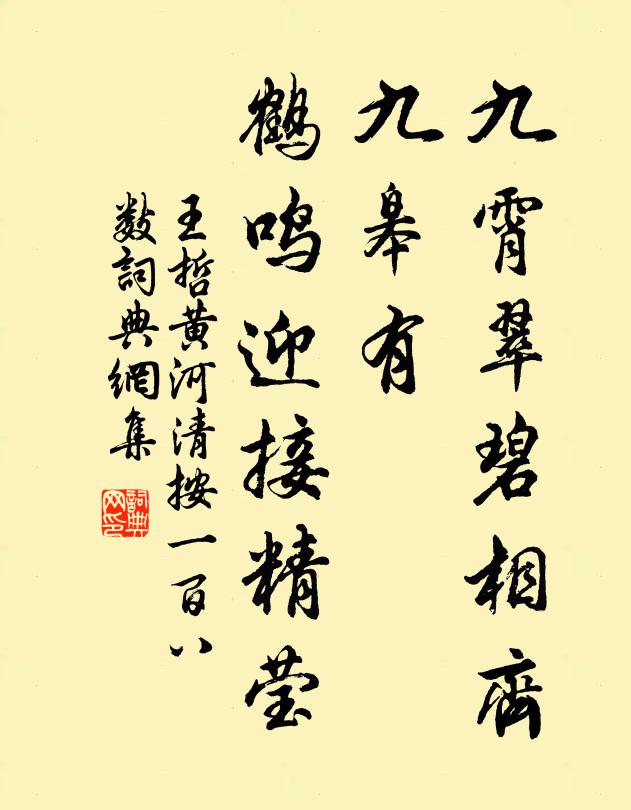 九霄翠碧相齊
九皋有
鶴鸣迎接精莹
王哲黄河清按一百八
数詞典網集
詞典
网印